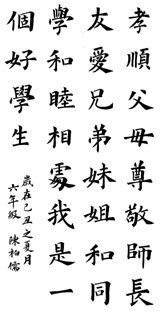 孝順父母尊敬師長
友愛兄弟妹姐和同
學和睦相處我是一
個好學生
歲在己丑之夏月
六年級 陳柏儒